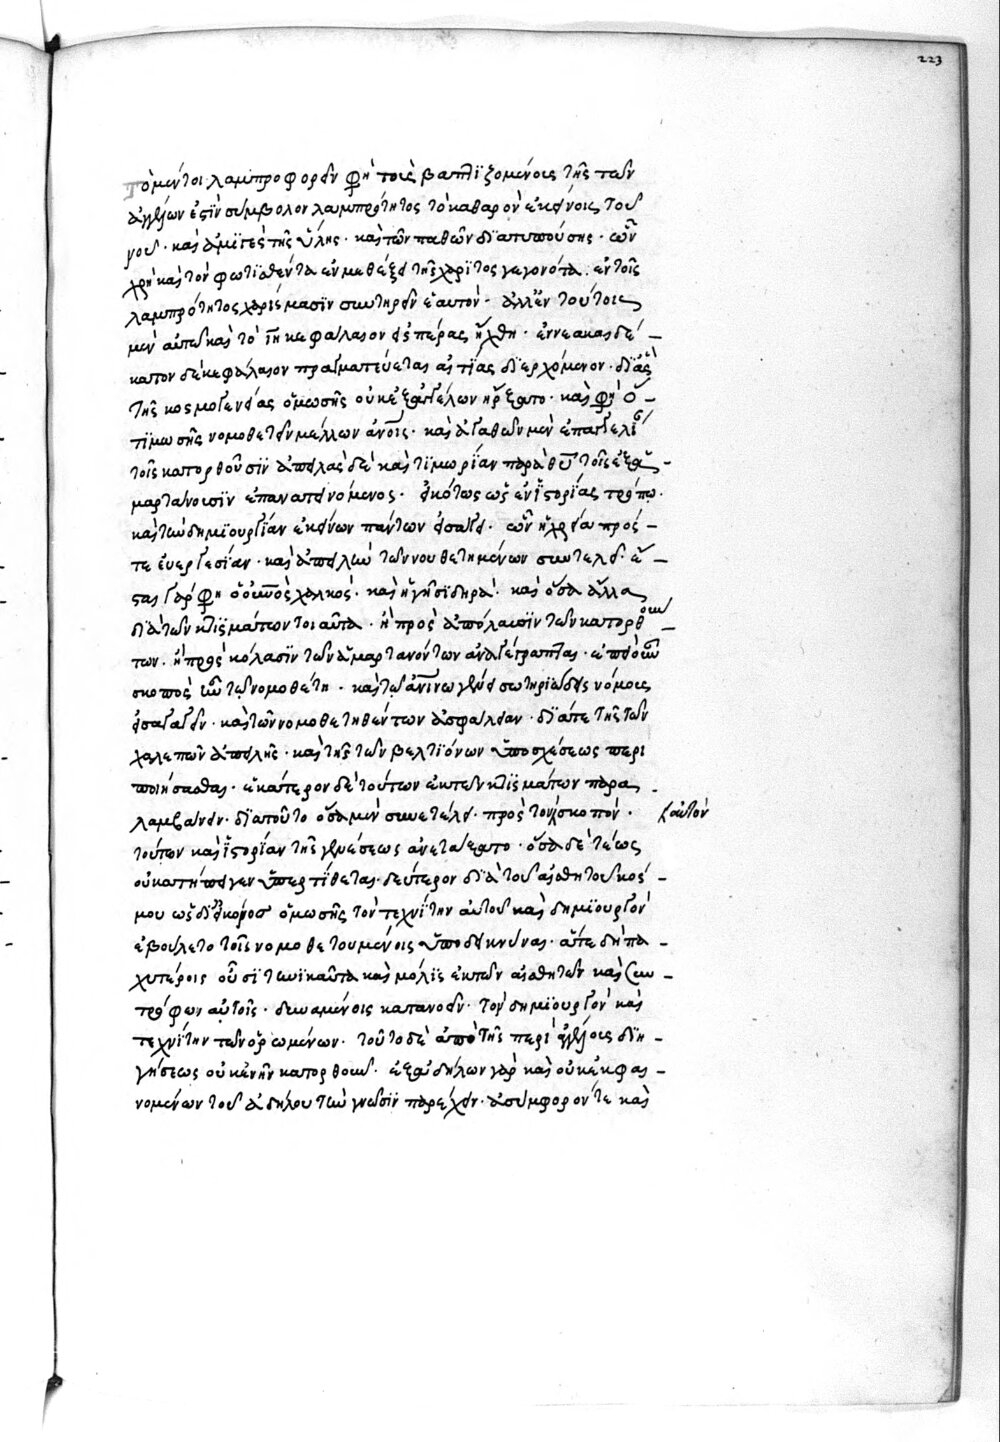 223
Τὸ μέντοι λαμπροφορεῖν φη τοῖς βαπτιζομένοις τῆς τῶν
ἀγγέλων ἐστὶν σύμβολον λαμπρότητος τὸ καθαρὸν ἐκείνοις τοῦ
νοῦ· καὶ ἀμιγὲς τῆς ὕλης· καὶ τῶν παθῶν διατυπούσης· ὧν
χρὴ καὶ τὸν φωτισθέντα ἐν μεθέξει τῆς χάριτος γεγονότα· ἐν τοῖς
λαμπρότητος χαρίσμασιν συντηρεῖν ἑαυτόν· ἀλλ' ἐν τούτοις
μὲν αὐτῶ καὶ τὸ ιη κεφάλαιον εἰς πέρας ἤχθη· ἐννεακαιδέ-
κατον δὲ κεφάλαιον πραγματεύεται αἰτίας διερχόμενον· δι' ἃς
τῆς κοσμογενείας ὁ μωσῆς οὐκ ἐξ ἀγγέλων ἤρξατο· καὶ φη ὅ-
τι μωσῆς νομοθετεῖν μέλλων ἀνοις· καὶ ἀγαθῶν μὲν ἐπαγγελί
τοῖς κατορθοῦσιν ἀπειλὰς δὲ καὶ τιμωρίαν παρὰ θυ τοῖς ἐξα-
μαρτάνουσιν ἐπανατεινόμενος· εἰκότως ὡς ἐν ἱστορίας τρόπω
καὶ τὴν δημιουργίαν ἐκείνων πάντων εἰσάγει· ὧν ἡ χρεία πρός-
τε εὐεργεσίαν· καὶ ἀπειλὴν τῶν νουθετημένων συντελεῖ· ἔ-
σται γάρ φη ὁ οὐνος χαλκός· καὶ ἡ γῆ σιδηρᾶ· καὶ ὅσα ἄλλα
διὰ τῶν κτισμάτων τοιαῦτα· ἢ πρὸς ἀπόλαυσιν τῶν κατορθού-
των· ἢ πρὸς κόλασιν τῶν ἁμαρτανόντων ἀναγέγραπται· ἐπεὶ οὖν
σκοπὸς ἦν τῶ νομοθέτη· καὶ τῶ ἀνίνω γένει σωτηριώδεις νόμους
εἰσαγαγεῖν· καὶ τῶν νομοθετηθέντων ἀσφάλειαν· διά τε τῆς τῶν
χαλεπῶν ἀπειλῆς· καὶ τῆς τῶν βελτιόνων ὑποσχέσεως περι
ποιήσασθαι· ἑκάτερον δὲ τούτων ἐκ τῶν κτισμάτων παρα
λαμβάνειν· διὰ τοῦτο ὅσα μὲν συνετέλει· πρὸς τὸν σκοπόν· αὐτὸν
τούτων καὶ ἱστορίαν τῆς γενέσεως ἀνετάξατο· ὅσα δὲ τέως
οὐ κατήπειγεν ὑπερτίθεται· δεύτερον διὰ τοῦ αἰσθητοῦ κόσ-
μου ὡς δι' εἰκόνος ὁ μωσῆς τὸν τεχνίτην αὐτοῦ καὶ δημιουργὸν
ἐβούλετο τοῖς νομοθετουμένοις ὑποδεικνύναι· ἅτε δὴ πα-
χυτέροις οὖσι τηνικαῦτα καὶ μόλις ἐκ τῶν αἰσθητῶν καὶ συν-
τρόφων αὐτοῖς· δυναμένοις κατανοεῖν· τὸν δημιουργὸν καὶ
τεχνίτην τῶν ὁρωμένων· τοῦτο δὲ ἀπὸ τῆς περὶ ἀγγέλους διη-
γήσεως οὐκ ἐνῆν κατορθοῦν· ἐξ ἀδήλων γὰρ καὶ οὐκ ἐκφαι-
νομένων τοῦ ἀδήλου τὴν γνῶσιν παρεῖχεν· ἀσύμφορόν τε καὶ